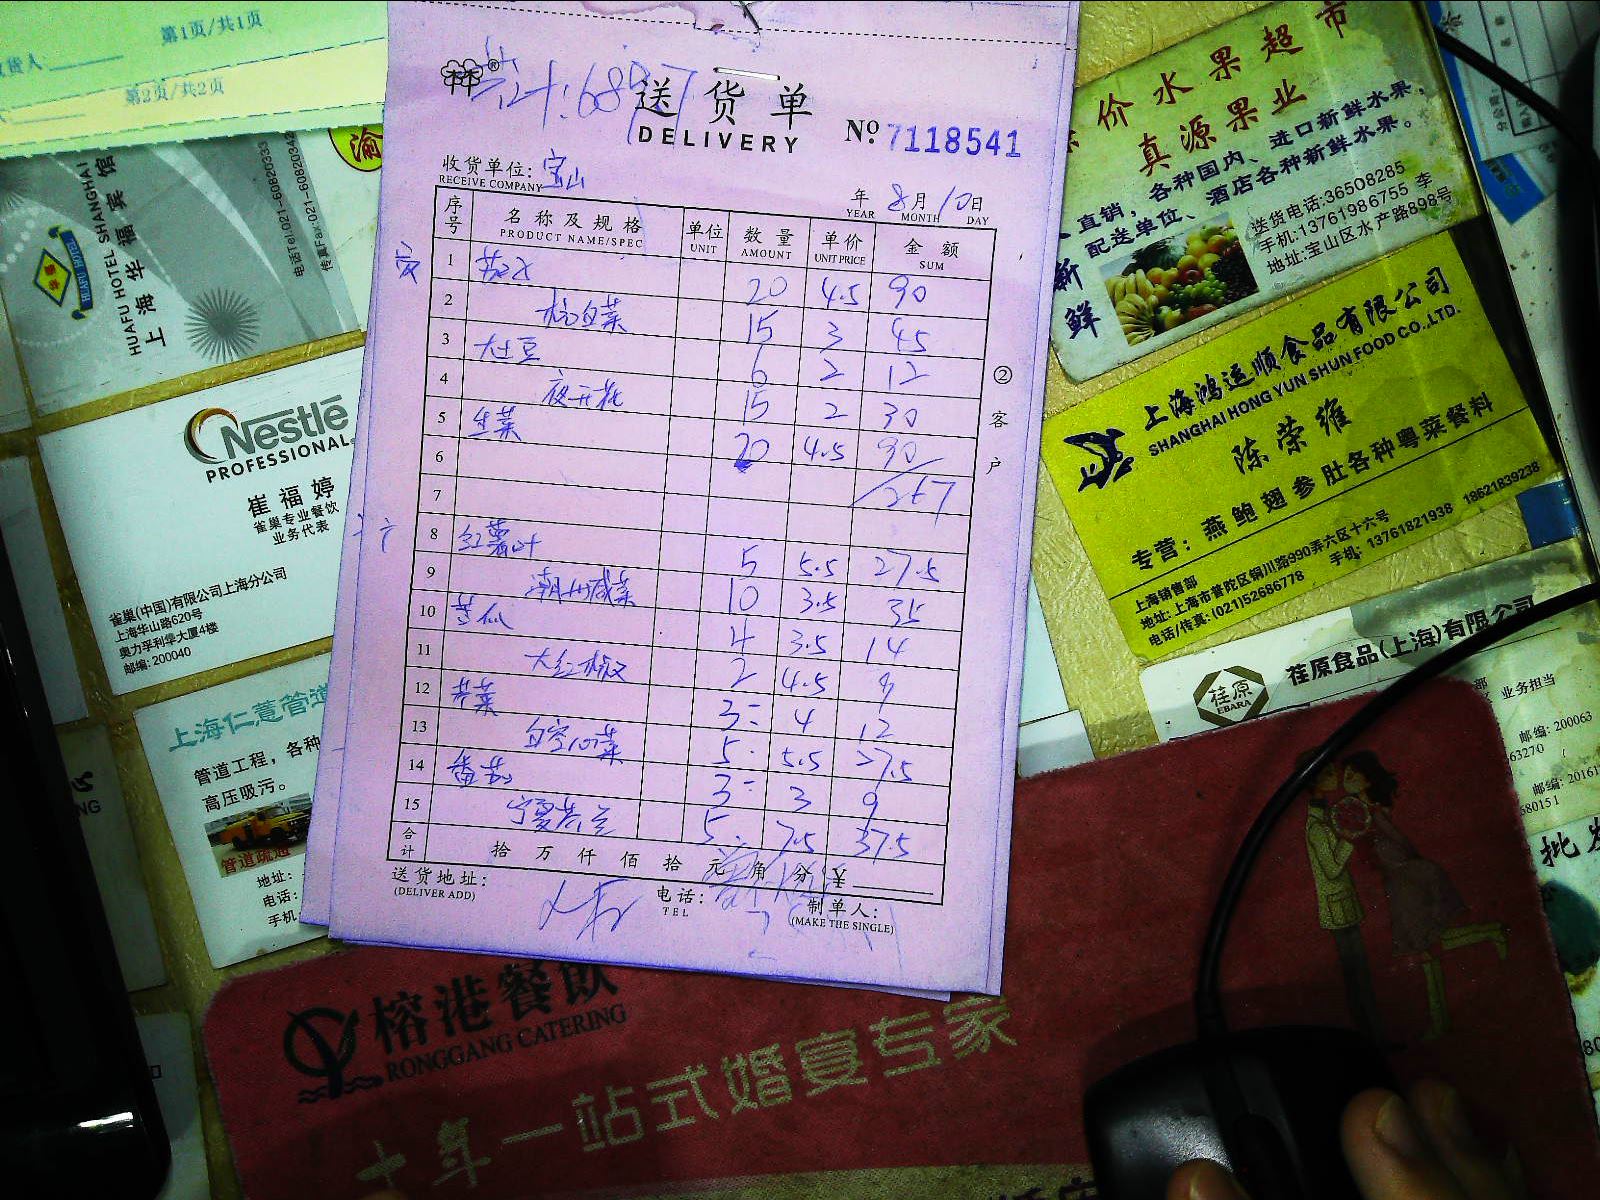 第1页/共1页
收货人
第2页/共2页
共计:687
送货单
DELIVERY
№ 7118541
收货单位: 宝山
RECEIVE COMPANY
年 8月 10日
YEAR MONTH DAY
序号 名称及规格 单位 数量 单价 金额
PRODUCT NAME/SPEC UNIT AMOUNT UNIT PRICE SUM
1 20 4.5 90
2 杭白菜 15 3 45
3 大土豆 6 2 12
4 夜开花 15 2 30
5 生菜 20 4.5 90
6 267
7
8 红薯叶 5 5.5 27.5
9 潮州咸菜 10 3.5 35
10 苦瓜 4 3.5 14
11 大红椒 2 4.5 9
12 芹菜 3 4 12
13 白空心菜 5 5.5 27.5
14 番茄 3 3 9
15 宁夏菜心 5 7.5 37.5
合计 拾 万 仟 佰 拾 元 角 分 ¥
送货地址:
(DELIVER ADD)
电话:
TEL
制单人:
(MAKE THE SINGLE)
②客户
HUAFU HOTEL SHANGHAI
上海华福宾馆
HUAFU HOTEL
电话Tel:021-60820333
传真Fax:021-6082034
渝
Nestlé
PROFESSIONAL
崔福婷
雀巢专业餐饮
业务代表
雀巢(中国)有限公司上海分公司
上海华山路620号
奥力孚利华大厦4楼
邮编: 200040
上海仁薏管道
管道工程，各种
高压吸污。
管道疏通
地址:
电话:
手机
价水果超市
真源果业
直销，各种国内、进口新鲜水果，
配送单位、酒店各种新鲜水果。
新鲜
送货电话:36508285
手机:13761986755 李
地址:宝山区水产路898号
上海鸿运顺食品有限公司
SHANGHAI HONG YUN SHUN FOOD CO.,LTD.
陈荣维
专营：燕鲍翅参肚各种粤菜餐料
上海销售部
地址: 上海市普陀区铜川路990弄六区十六号
电话/传真: (021)52686778 手机: 13761821938 18621839238
荏原
EBARA
荏原食品(上海)有限公司
部 业务担当
邮编: 200063
63270
邮编: 20161
680151
批发
榕港餐飲
RONGGANG CATERING
十年一站式婚宴专家